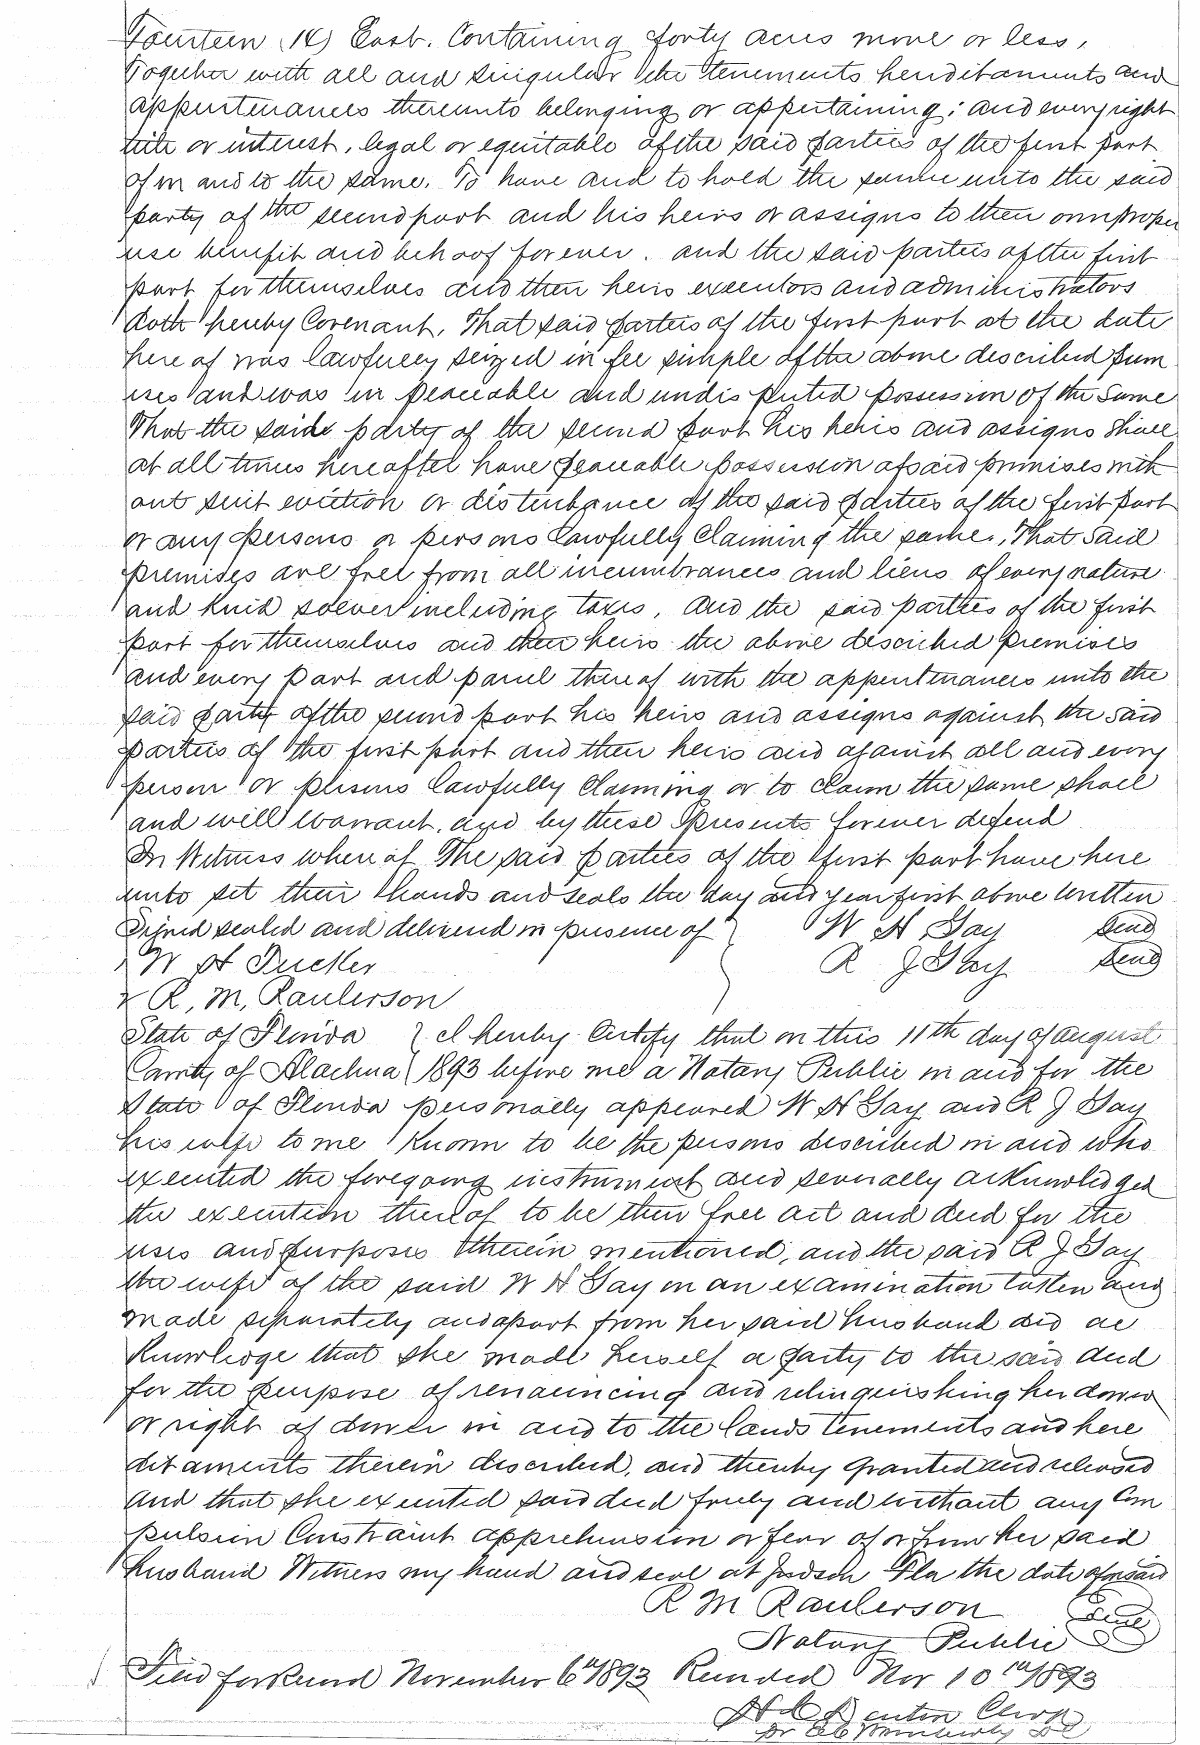 Fourteen (14) East. Containing forty acres more or less,
Together with all and singular the tenements hereditaments and
appurtenances thereunto belonging or appertaining; and every right
title or interest, legal or equitable of the said parties of the first part
of in and to the same. To have and to hold the same unto the said
party of the second part and his heirs or assigns to their own proper
use benefit and behoof forever. and the said parties of the first
part for themselves and their heirs executors and administrators
doth hereby Covenant, That said parties of the first part at the date
here of was lawfully seized in fee simple of the above described prem
ises and was in peaceable and undisputed possession of the same
That the said party of the second part his heirs and assigns shall
at all times hereafter have peaceable possession of said premises with
out suit eviction or disturbance of the said parties of the first part
or any persons or persons lawfully Claiming the same, That said
premises are free from all incumbrances and liens of every nature
and kind soever including taxes, and the said parties of the first
part for themselves and their heirs the above described premises
and every part and parcel thereof with the appurtenances unto the
said party of the second part his heirs and assigns against the said
parties of the first part and their heirs and against all and every
person or persons lawfully Claiming or to claim the same shall
and will warrant, and by these presents forever defend
In Witness where of The said parties of the first part have here
unto set their hands and seals the day and year first above written
Signed sealed and delivered in presence of } W H Gay Seal
W H Tucker R J Gay Seal
R. M. Raulerson
State of Florida } I hereby Certify that on this 11th day of August
County of Alachua } 1893 before me a Notary Public in and for the
State of Florida personally appeared W H Gay and R J Gay
his wife to me Known to be the persons described in and who
executed the foregoing instrument and severally acknowledged
the execution thereof to be their free act and deed for the
uses and purposes therein mentioned, and the said R J Gay
the wife of the said W H Gay on an examination taken and
made separately and apart from her said husband did ac
Knowledge that she made herself a party to the said deed
for the purpose of renouncing and relinquishing her dower
or right of dower in and to the lands tenements and here
ditaments therein described, and thereby granted and released
and that she executed said deed freely and without any Com
pulsion Constraint apprehension or fear of or from her said
husband Witness my hand and seal at Judson Fla the date aforesaid
R M Raulerson Seal
Notary Public
Filed for Record November 6th 1893 Recorded Nov 10th 1893
H C Denton Clerk